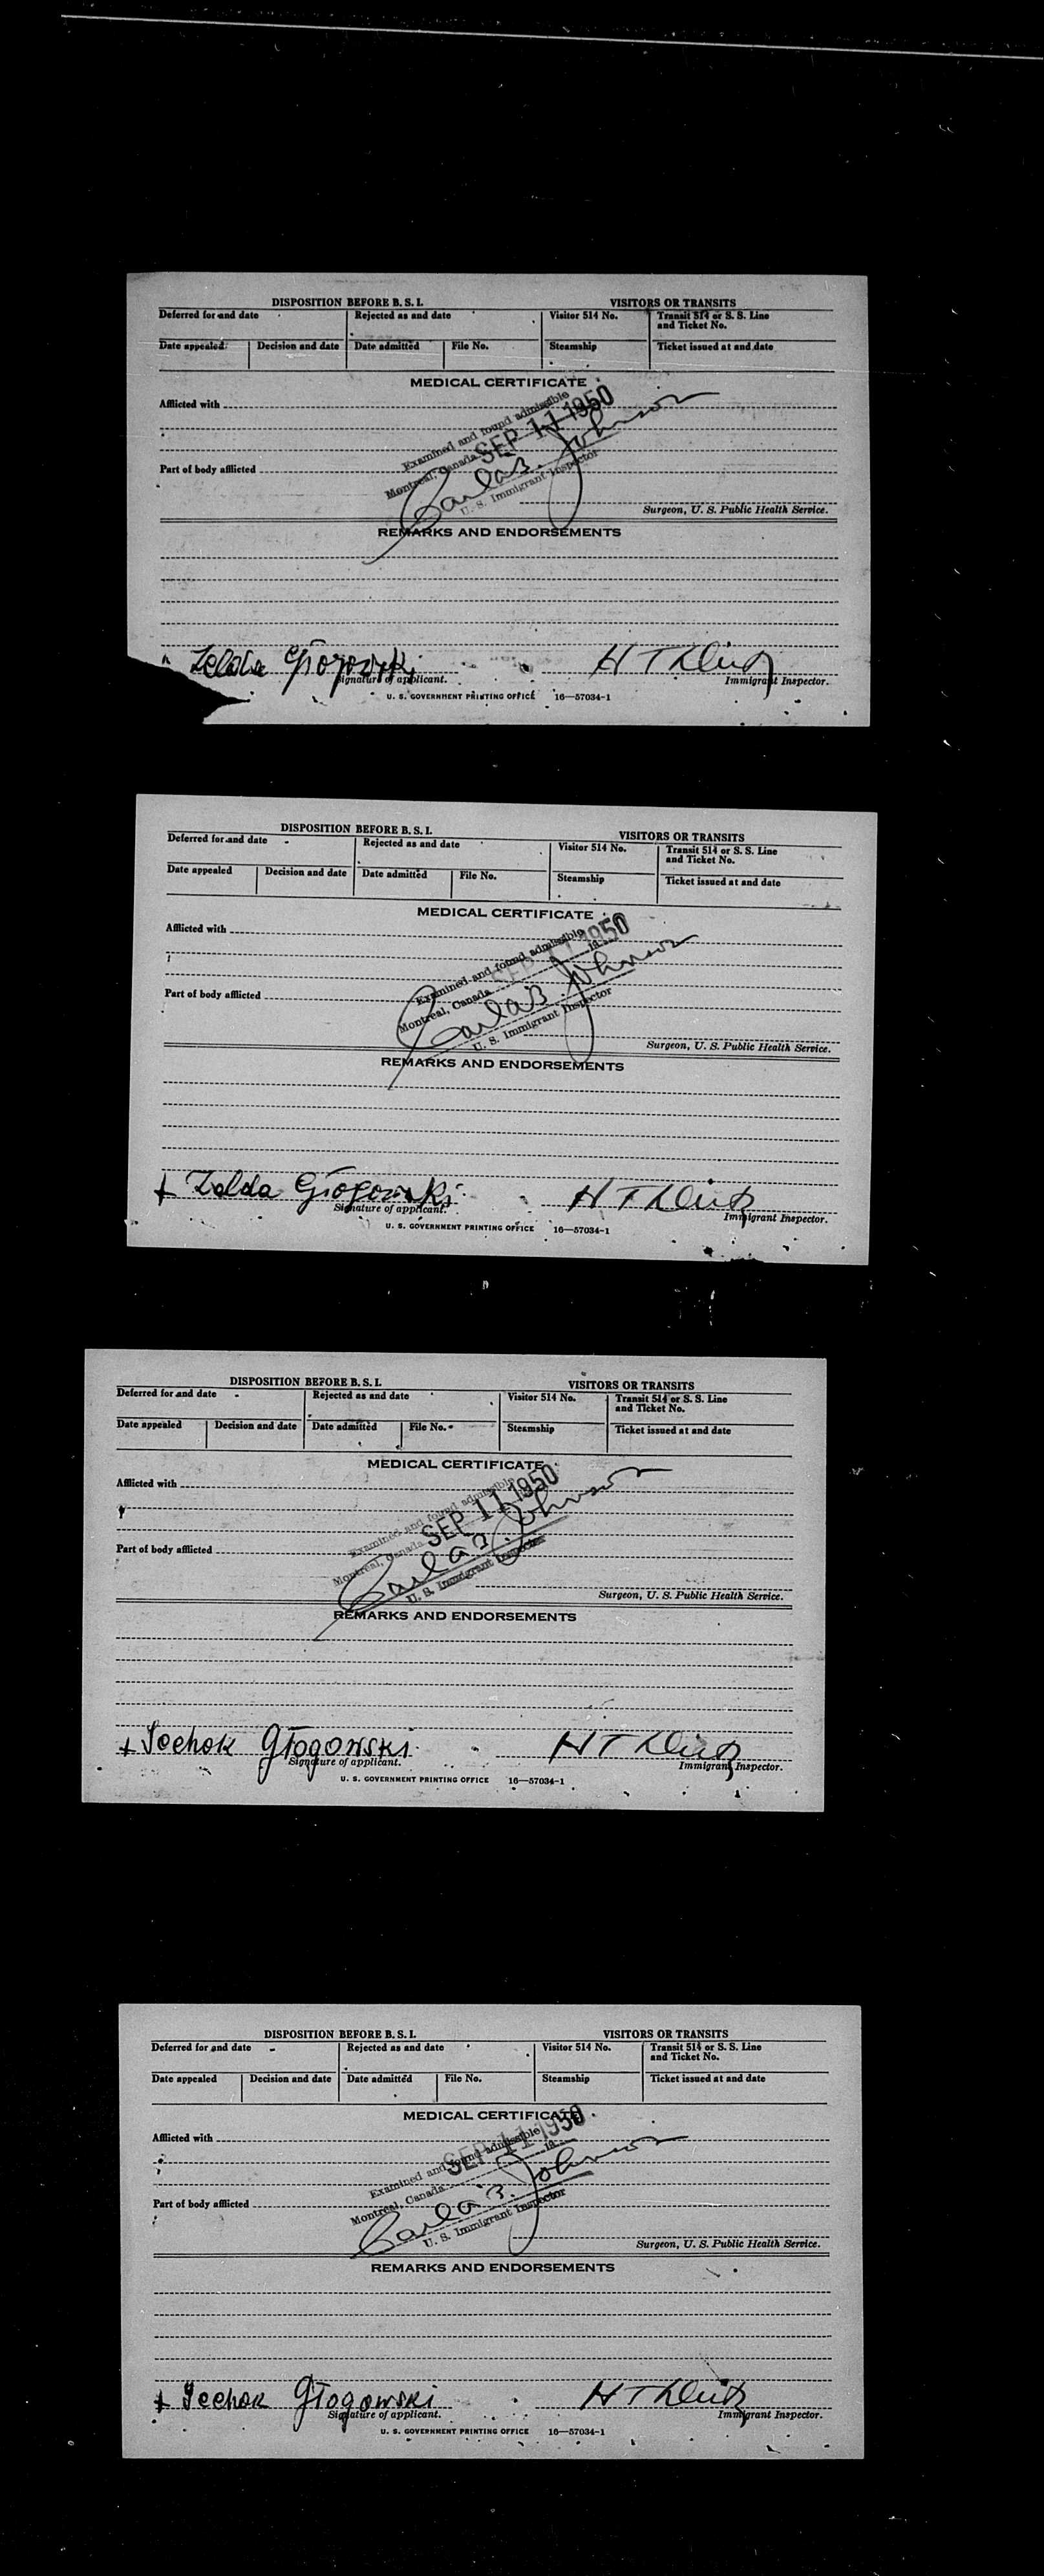 DISPOSITION BEFORE B. S. I. VISITORS OR TRANSITS
Deferred for and date Rejected as and date Visitor 514 No. Transit 514 or S. S. Line and Ticket No.
Date appealed Decision and date Date admitted File No. Steamship Ticket issued at and date
MEDICAL CERTIFICATE
Afflicted with
Examined and found admissible
SEP 11 1950
Montreal, Canada
Part of body afflicted
Johnson
U. S. Immigrant Inspector
Surgeon, U. S. Public Health Service.
REMARKS AND ENDORSEMENTS
Zelda Głogowski
Signature of applicant. Immigrant Inspector.
U. S. GOVERNMENT PRINTING OFFICE 16—57034-1
DISPOSITION BEFORE B. S. I. VISITORS OR TRANSITS
Deferred for and date Rejected as and date Visitor 514 No. Transit 514 or S. S. Line and Ticket No.
Date appealed Decision and date Date admitted File No. Steamship Ticket issued at and date
MEDICAL CERTIFICATE
Afflicted with
Examined and found admissible
SEP 11 1950
Montreal, Canada 19
Part of body afflicted
Johnson
U. S. Immigrant Inspector
Surgeon, U. S. Public Health Service.
REMARKS AND ENDORSEMENTS
Zelda Głogowski
Signature of applicant. Immigrant Inspector.
U. S. GOVERNMENT PRINTING OFFICE 16—57034-1
DISPOSITION BEFORE B. S. I. VISITORS OR TRANSITS
Deferred for and date Rejected as and date Visitor 514 No. Transit 514 or S. S. Line and Ticket No.
Date appealed Decision and date Date admitted File No. Steamship Ticket issued at and date
MEDICAL CERTIFICATE
Afflicted with
Examined and found admissible
SEP 11 1950
Montreal, Canada
Part of body afflicted
Johnson
U. S. Immigrant Inspector
Surgeon, U. S. Public Health Service.
REMARKS AND ENDORSEMENTS
Głogowski
Signature of applicant. Immigrant Inspector.
U. S. GOVERNMENT PRINTING OFFICE 16—57034-1
DISPOSITION BEFORE B. S. I. VISITORS OR TRANSITS
Deferred for and date Rejected as and date Visitor 514 No. Transit 514 or S. S. Line and Ticket No.
Date appealed Decision and date Date admitted File No. Steamship Ticket issued at and date
MEDICAL CERTIFICATE
Afflicted with
Examined and found admissible
SEP 11 1950
Montreal, Canada 19
Part of body afflicted
Johnson
U. S. Immigrant Inspector
Surgeon, U. S. Public Health Service.
REMARKS AND ENDORSEMENTS
Głogowski
Signature of applicant. Immigrant Inspector.
U. S. GOVERNMENT PRINTING OFFICE 16—57034-1